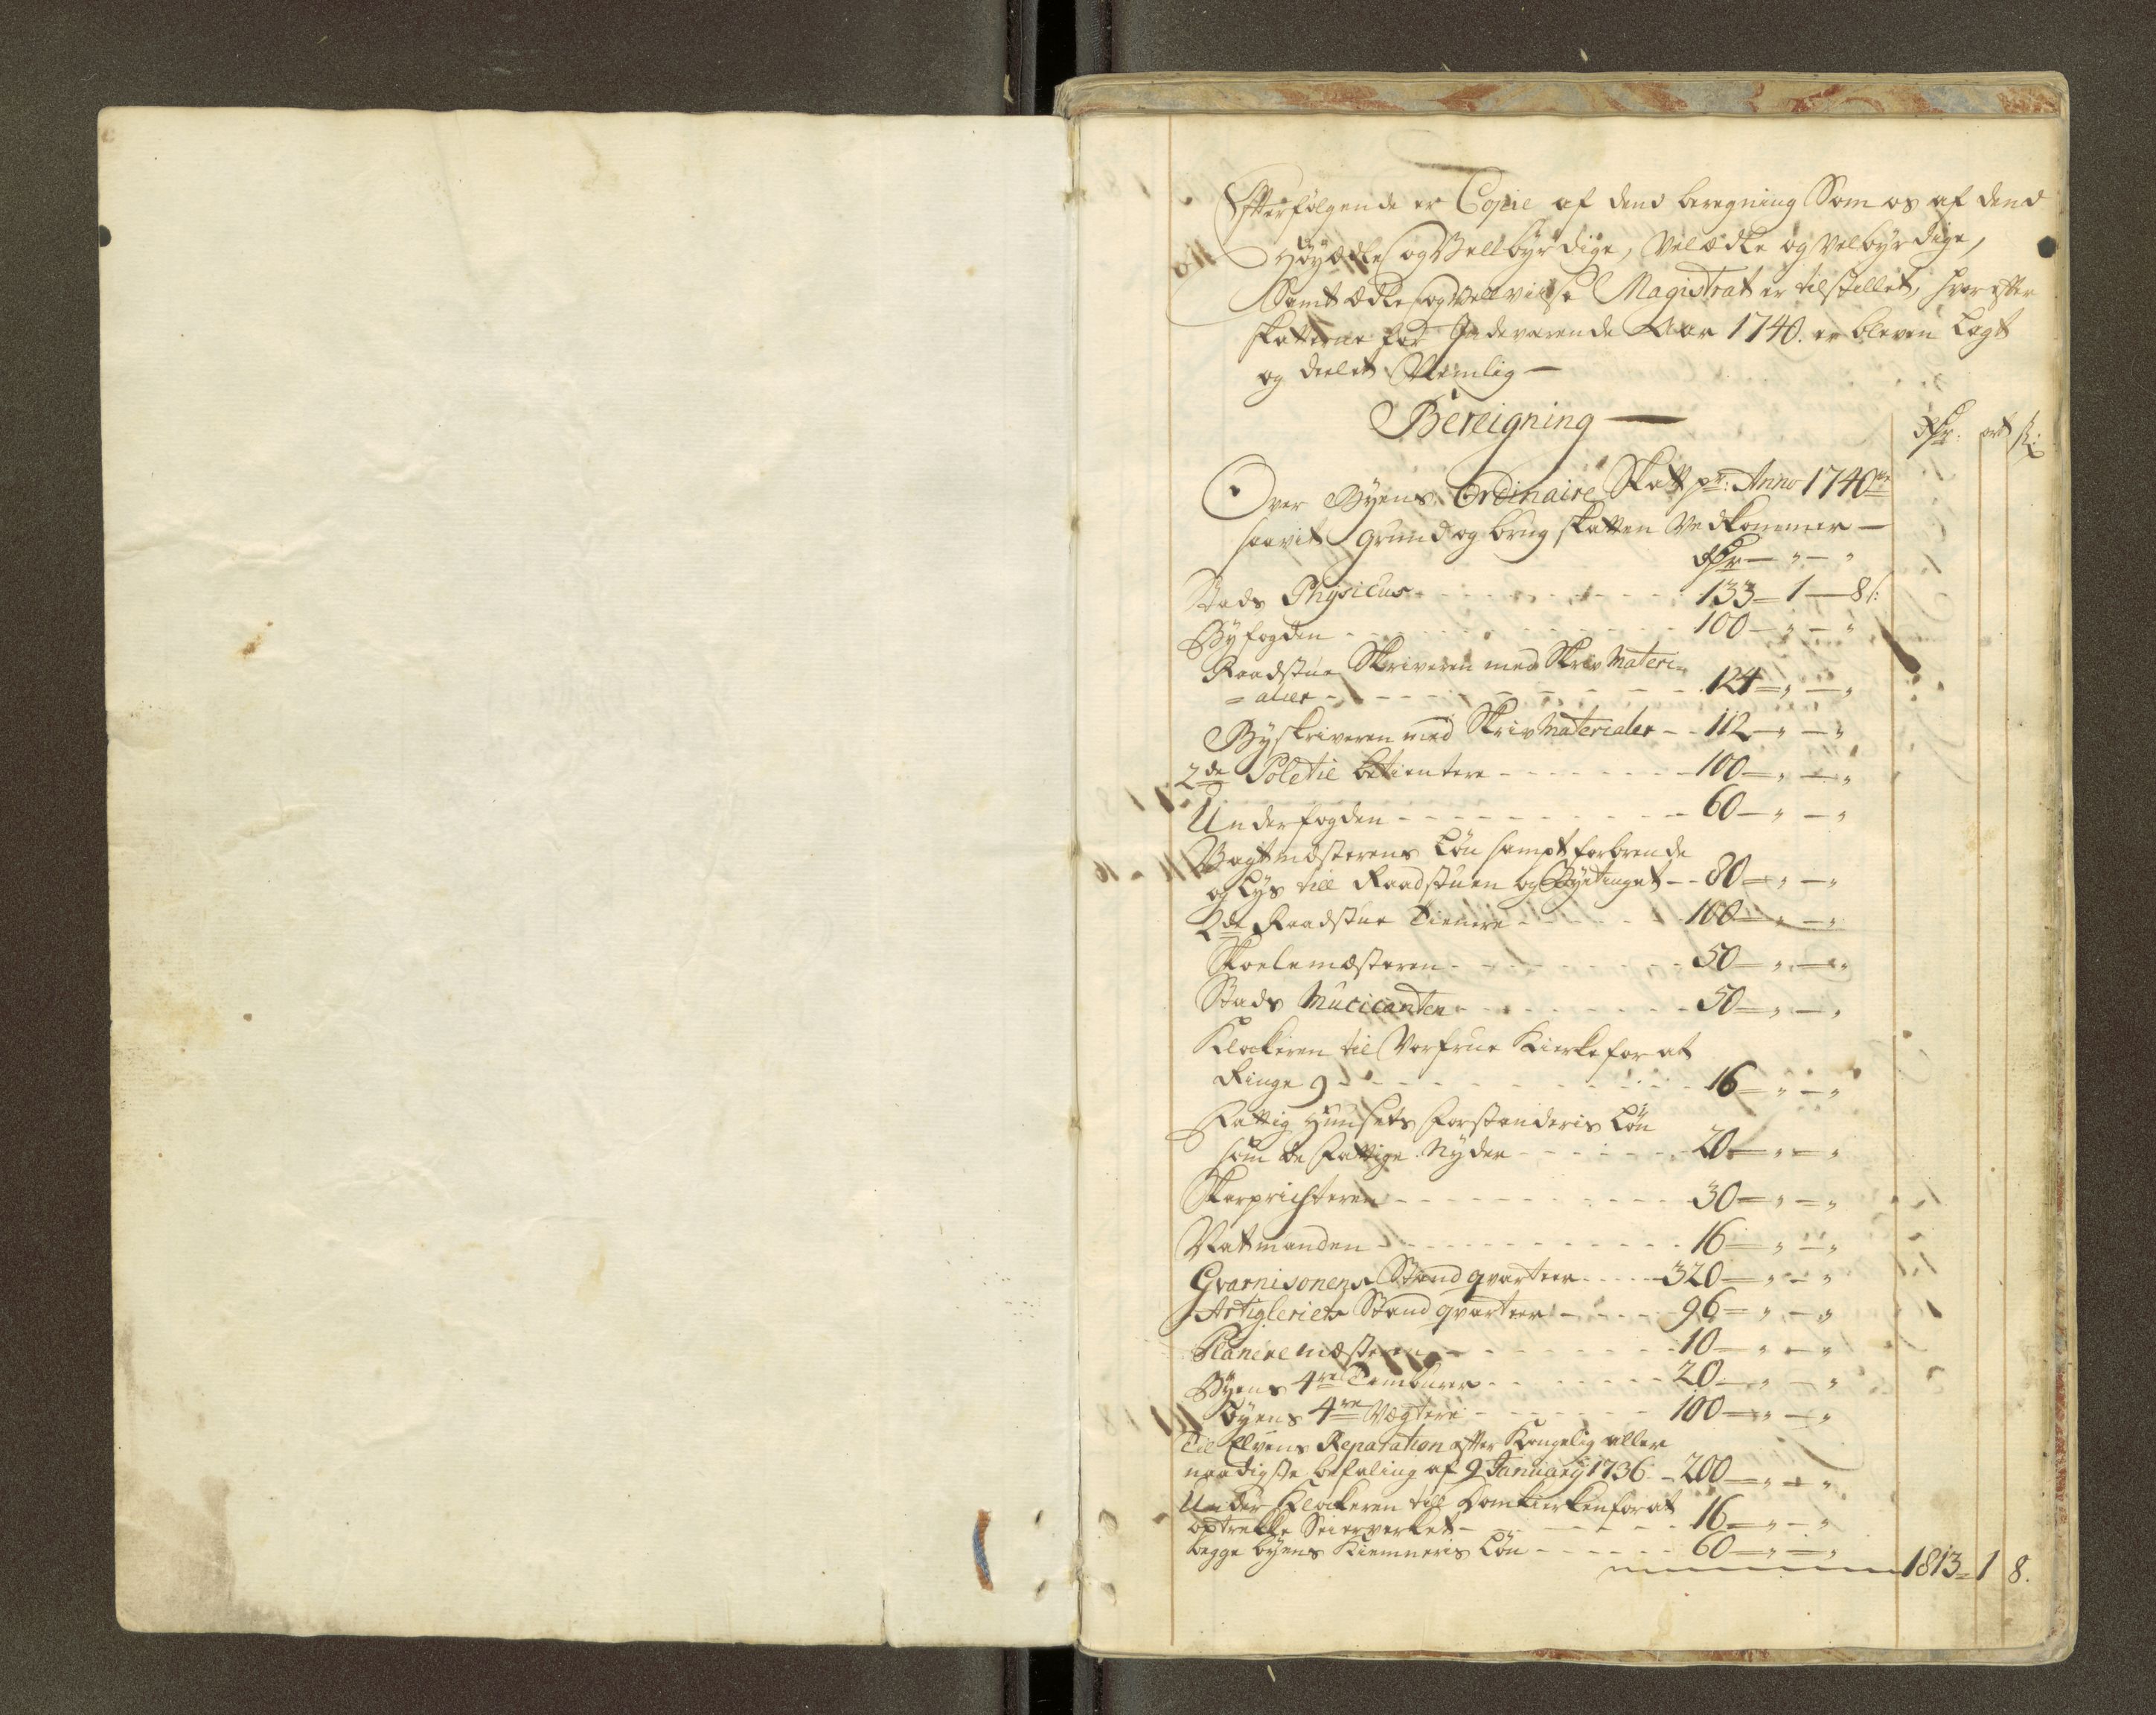 Efterfølgende er Copie af dend beregning Som os af dend
Høyædle og Vellbyrdige, Velædle og Velbyrdige,
Samt ædle og Vellviise Magistrat er tilstillet, hvor efter
skatterne for Indeværende Aar 1740. er bleven Lagt
og deelet Nemlig —
Bereigning —
Rdr. ort ß:
Over Byens Ordinaire Skatt pr: Anno 1740
saavit grund og brug skatten Vedkommer —
Rdr — " — "
Stads Physicus - - - 133 – 1 — 8 ß:
Byfogden - - - 100 — " — "
Raadstue Skriveren med Skriv Materi=
=alier - - - 124 — " — "
Byskriveren med Skriv Materialer - - 112 — " — "
2de Poletie betientere - - - 100 — " — "
Underfogden - - - 60 — " — "
Vagtmesterens Løn sampt forbrende
og Lys till Raadstuen og Byetinget - - 80 — " — "
2de Raadstue Tienere - - - 100 — " — "
Skolemæsteren - - - 50 — " — "
Stads Mucicanten - - - 50 — " — "
Klockeren til Vorfrue Kierke for at
Ringe 9 - - - 16 — " — "
Fattig Huusets Forstanderis Løn
som de Fattige Nyder - - - 20 — " — "
Skarprichteren - - - 30 — " — "
Natmanden - - - 16 — " — "
Gvarnisonens Stand qvarteer - - - 320 — " — "
Artigleriets Stand qvarteer - - - 96 — " — "
Planeremæsteren - - - 10 — " — "
Byens 4re Tamburer - - - 20 — " — "
Byens 4re Vægtere - - - 100 — " — "
Til Elvens Reparation efter Kongelig aller
naadigste befaling af 9 January 1736 - 200 — " — "
Under Klockeren till Domkierken for at
optrekke Seierverket - - - 16 — " — "
begge byens Kiemneris Løn - - - 60 — " — "
1813 – 1 8.